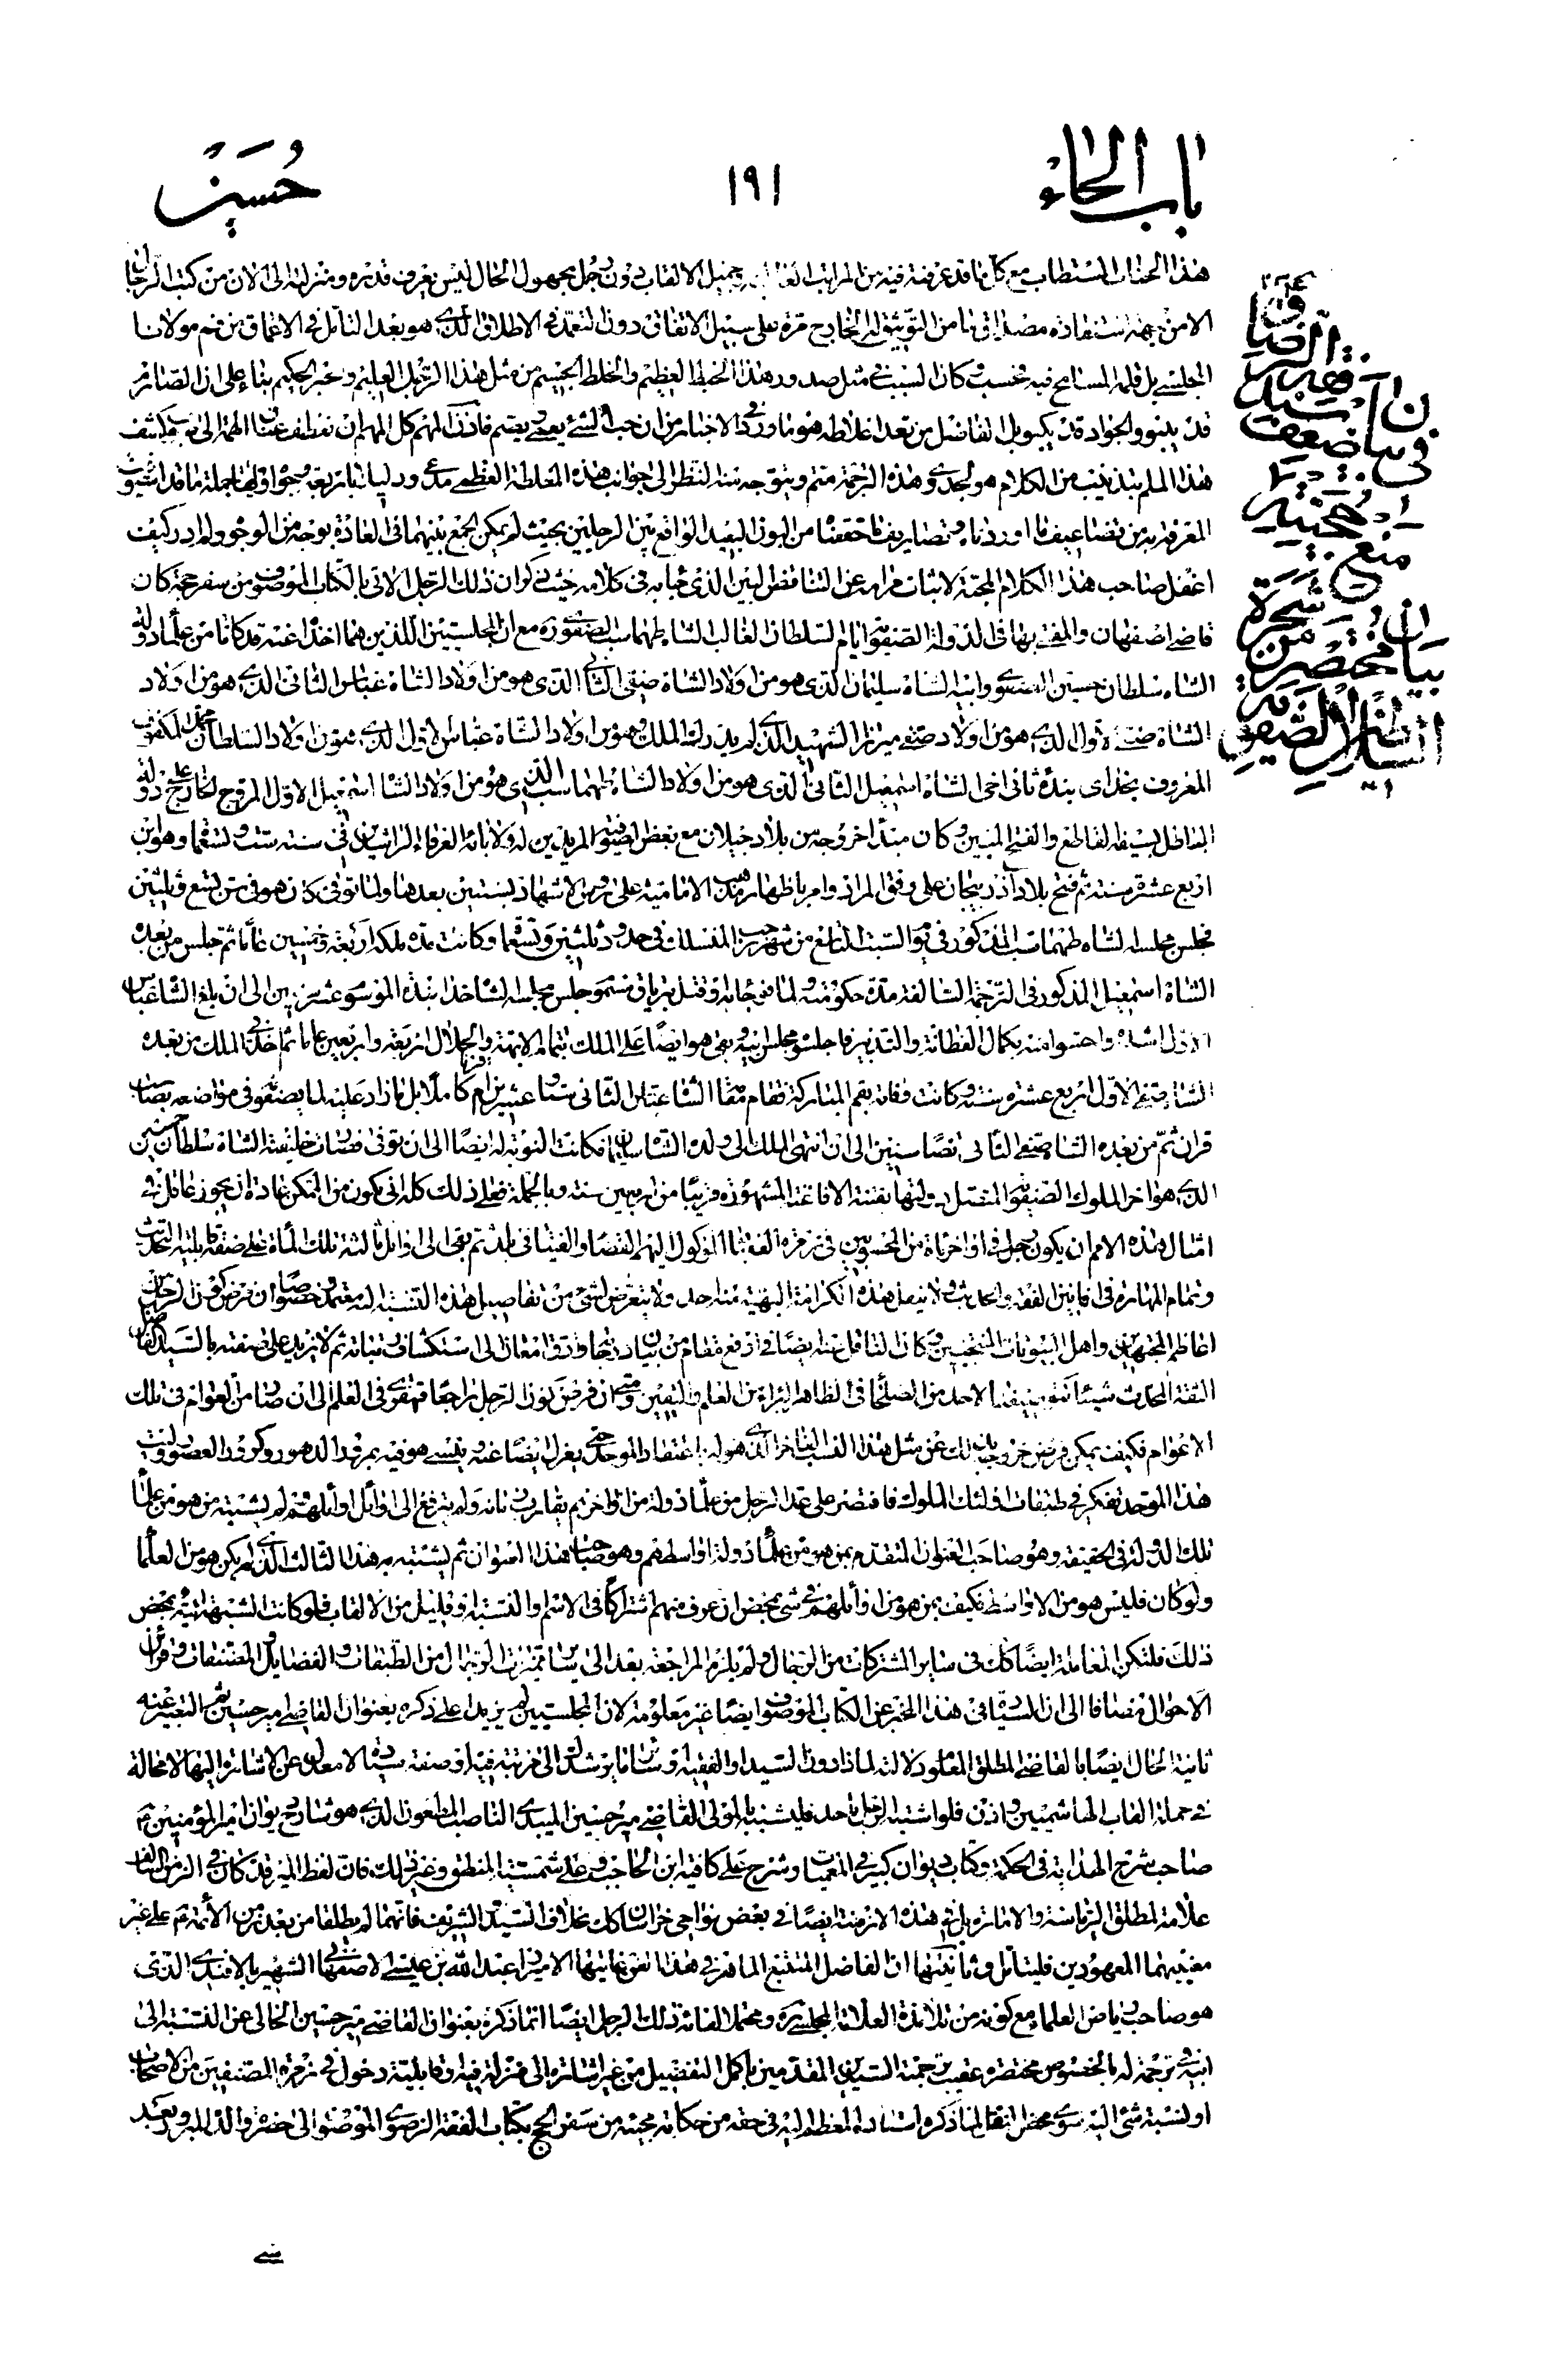 باب الحاء
١٩١
حسين
هذا الجناب المستطاب مع كل ما قد عرفته فيه من المراتب وجميل الالقاب دون رجل مجهول الحال ليس يعرف قدره ومنزلته الى الان من كتب الرجال
الا من جهة استفاده مصداق ما من التوثيق له الخارج مرة على سبيل الاتفاق دون التعمد في الاطلاق الذي هو بعد التأمل في الاعماق من مولانا
المجلسي بل قلمه المسامح فيه فحسب وكان السبب في مثل صدور هذا الخبط العظيم والخلط الجسيم من مثل هذا الرجل العليم وخبر الحكيم بناء على ان الصارم
قد ينبو والجواد قد يكبو بل الفاضل من تعد اغلاطه هو ما ورد في الاخبار من ان حب الشئ يعمي ويصم فاذن المهم كل المهم ان نعطف عنان الهمة الى كشف
هذا الملم بتذنيب من الكلام هو لجدوى هذه الترجمة متمم ويتوجه منه النظر الى جوانب هذه المغلطة العظمى
المعرفة به من تضاعيف ما اوردناه وتصاريف ما حققناه من البون البعيد الواقع بين الرجلين بحيث لم يمكن الجمع بينهما في العادة بوجه من الوجوه ولم ادر كيف
اغفل صاحب هذا الكلام المحجة لاثبات مرامه عن التناقض البين الذي جاء به في كلامه حيث ذكر ان ذلك الرجل الاتي بالكتاب الموصوف من سفر حجه كان
قاضي اصفهان والمفتي بها في الدولة الصفوية ايام السلطان الغالب الشاه طهماسب الصفوي مع ان المجلسيين اللذين هما اخذا عنه قد كانا من علماء دولة
الشاه سلطان حسين الصفوي وابيه الشاه سليمان الذي هو من اولاد الشاه صفي الثاني الذي هو من اولاد الشاه عباس الثاني الذي هو من اولاد
الشاه صفي الاول الذي هو من اولاد صفي ميرزا الشهيد الذي لم يدرك الملك وهو من اولاد الشاه عباس الاول الذي هو من اولاد السلطان محمد المكفوف
المعروف بخداي بنده ثاني اخي الشاه اسمعيل الثاني الذي هو من اولاد الشاه طهماسب الذي هو من اولاد الشاه اسمعيل الاول المروج الخارج على دولة
الباطل بسيفه القاطع والفتح المبين وكان مبدأ خروجه من بلاد جيلان مع بعض الصوفية المريدين له ولابائه العرفاء الراشدين في سنة ست وتسعمأة وهو ابن
اربع عشرة سنة ثم فتح بلاد آذربيجان على وفق المراد وامر باظهار مذهب الامامية على رؤس الاشهاد بسنتين بعدها ولما توفي كان هو في سن تسع وثلثين
فجلس مجلسه الشاه طهماسب المذكور في يوم السبت التاسع من شهر رجب المنسلك في حدود ثلثين وتسعمأة وكانت مدة ملكه اربعة وخمسين عاما ثم جلس من بعده
الشاه اسمعيل المذكور في الترجمة السالفة مدة حكومته ولما قضى وقتل بترياق مسموم جلس مجلسه الشاه خدا بنده الموسوم عشر سنين الى ان بلغ الشاه عباس
الاول اشده واحسوا منه بكمال الفطانة والتدبير فاجلسوه مجلس ابيه وبقي هو ايضا على الملك بتمام الابهة والجلال اربعة واربعين عاما ثم اخذ في الملك من بعده
الشاه صفي الاول اربع عشرة سنة وكانت وفاته بقم المباركة فقام مقامه الشاه عباس الثاني ستا وعشرين عام كاملا بل ما زاد عليه لما يصنفوه في مواضعه بصاحب
قران ثم من بعده الشاه صفي الثاني ايضا سنين الى ان انتهى الملك الى ولده الشاه سليمان فكانت النوبة له ايضا الى ان توفي فصار خليفته الشاه سلطان حسين
الذي هو اخر الملوك الصفوية المقتول بفتنة الافاغنة المشهورة قريبا من اربعين سنة وبالجملة فعلى ذلك كله انى يكون من الممكن عادة ان يجوز عاقل في
امثال هذه الامم ان يكون رجل في اواخر مأة من المحسوبين في زمرة الفقهاء الموكول اليهم القضاء والفتيا في بلد ثم بقي الى اوائل ثالثة تلك المأة على صفة قابلية التحديث
وتمام المهارة في افانين الفقه والحديث ولا ينقل هذه الكرامة البهية منه احد ولا يتعرض لشئ من تفاصيل هذه النسبة له معتمد خصوصا وان فرض كون الرجل من
اعاظم المجتهدين واهل البيوتات المنتجبين وكان الناقل عنه ايضا في ارفع مقام من
الثقة المحدث شيئا
الاعوام فكيف يمكن فرض خروج ذلك عن مثل هذا النسب الفاخر الذي هو له باعتقاد الموحد حتى يعزل ايضا عنه وينسى هو فيه بمرور الدهور وكرور العصور وليت
هذا الموحد تفكر في طبقات اولئك الملوك فاقتصر على عد الرجل من علماء دولة من اواخرهم يقارب زمانه ولم يترفع الى اوائل اوائلهم ثم لم يشتبه من هو من علماء
تلك الدولة في الحقيقة وهو صاحب العنوان المتقدم بمن هو من علماء دولة اواسطهم وهو صاحب هذا العنوان ثم يشتبه بهذا الثالث الذي لم يكن هو من العلماء
ولو كان فليس هو من الاواسط فكيف بمن هو من اوائلهم في شئ بمحض ان عرف منهم اشتراكا في الاسم والنسبة وقليل من الالقاب فلو كانت الشبهة اتية بمحض
ذلك فلتكن المعاملة ايضا كك في سائر المشتركات من الرجال ولم يلزم المراجعة بعد الى سائر مميزات الرجال من الطبقات والفضايل والمصنفات وقرائن
الاحوال مضافا الى ان السيادة في هذا المخبر عن الكتاب الموصوف ايضا غير معلومة لان المجلسيين لم يزيدا على ذكره بعنوان القاضي امير حسين ثم التعبير عنه
ثانية الحال ايضا بالقاضي المطلق المعلوم دلالته لما ذا دون السيد او الفقيه او سائر ما يرشدك الى مرتبة فيه او صفة سيادة لا معدل عن الاشارة اليها لا محالة
في جملة القاب الهاشميين واذن فلو اشتبه الرجل باحد فليشتبه بالمولى القاضي مير حسين الميبدي الناصب المطعون الذي هو شارح ديوان امير المؤمنين ع
صاحب شرح الهداية في الحكمة وكتاب ديوان كبير في المعميات وشرح على كافية ابن الحاجب وعلى شمسية المنطق وغير ذلك فان لفظ المير قد كان في الزمن السالف
علامة لمطلق الرياسة والامارة بل في هذه الازمنة ايضا في بعض نواحي خراسان كك بخلاف السيد الشريف فانهما لم يطلقا من بعد زمن الائمة ع على غير
معنييهما المعهودين فليتأمل وثانيتها ان الفاضل المتتبع الماهر في هذا الفن غايتها الاميرزا عبد الله بن عيسى الاصفهاني الشهير بالافندي الذي
هو صاحب رياض العلماء مع كونه من تلامذة العلامة المجلسي ره ومحتمل لقائه ذلك الرجل ايضا انما ذكره بعنوان القاضي مير حسين الخالي عن النسبة الى
ابيه في ترجمة له بالخصوص مختصرة عقيب ترجمة السيدين المقدمين باكمل التفصيل من غير اشارة الى منزلة فيه او قابلية دخول في زمرة المصنفين من الاصحاب
او نسبة شئ اليه سوى محض انتقال لما ذكره استاده المعظم اليه في حقه من حكاية مجيئه من سفر الحج بكتاب الفقه الرضوي الموضوع الى حضرة والده المبرور بعد
في بيان ضعف
منع حجية
شجرة
بيان مختصر من
السلاطين الصفوية